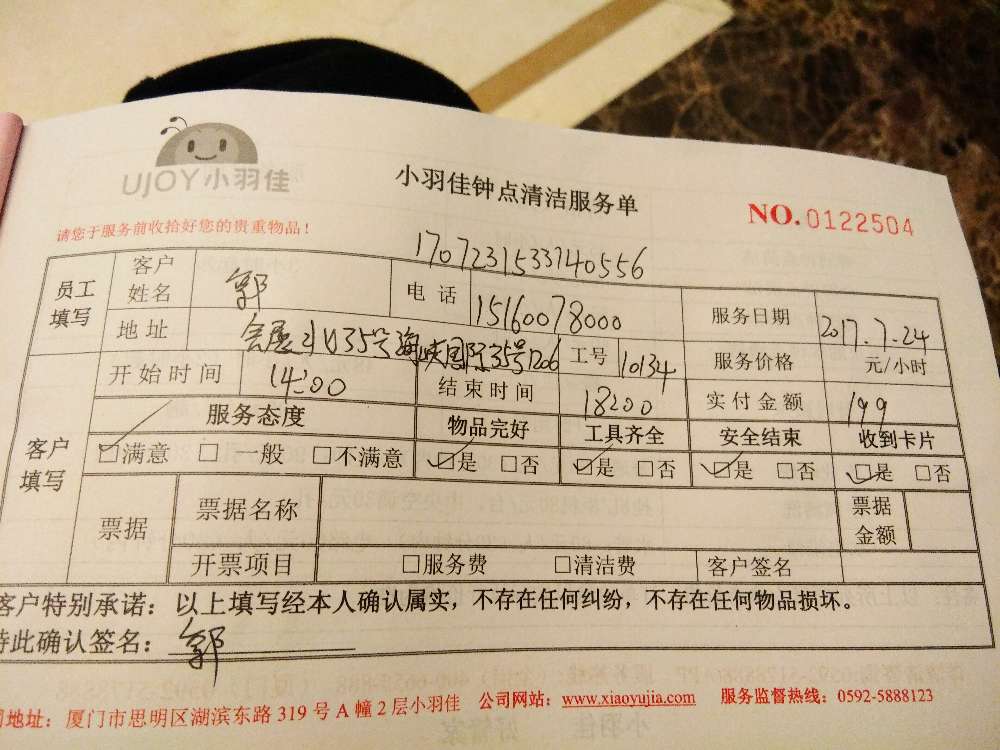 UJOY小羽佳
小羽佳钟点清洁服务单
NO.0122504
请您于服务前收拾好您的贵重物品！
17072315333740556
员工填写 客户姓名 郭 电话 15160078000 服务日期 2017.7.24
地址 海峡国际35号1206 工号 10134 服务价格 元/小时
客户填写 开始时间 14:00 结束时间 18:00 实付金额 199
服务态度 物品完好 工具齐全 安全结束 收到卡片
☑满意 □一般 □不满意 ☑是 □否 ☑是 □否 ☑是 □否 ☑是 □否
票据 票据名称 票据金额
开票项目 □服务费 □清洁费 客户签名
客户特别承诺：以上填写经本人确认属实，不存在任何纠纷，不存在任何物品损坏。
特此确认签名：郭
地址：厦门市思明区湖滨东路319号A幢2层小羽佳 公司网站：www.xiaoyujia.com 服务监督热线：0592-5888123